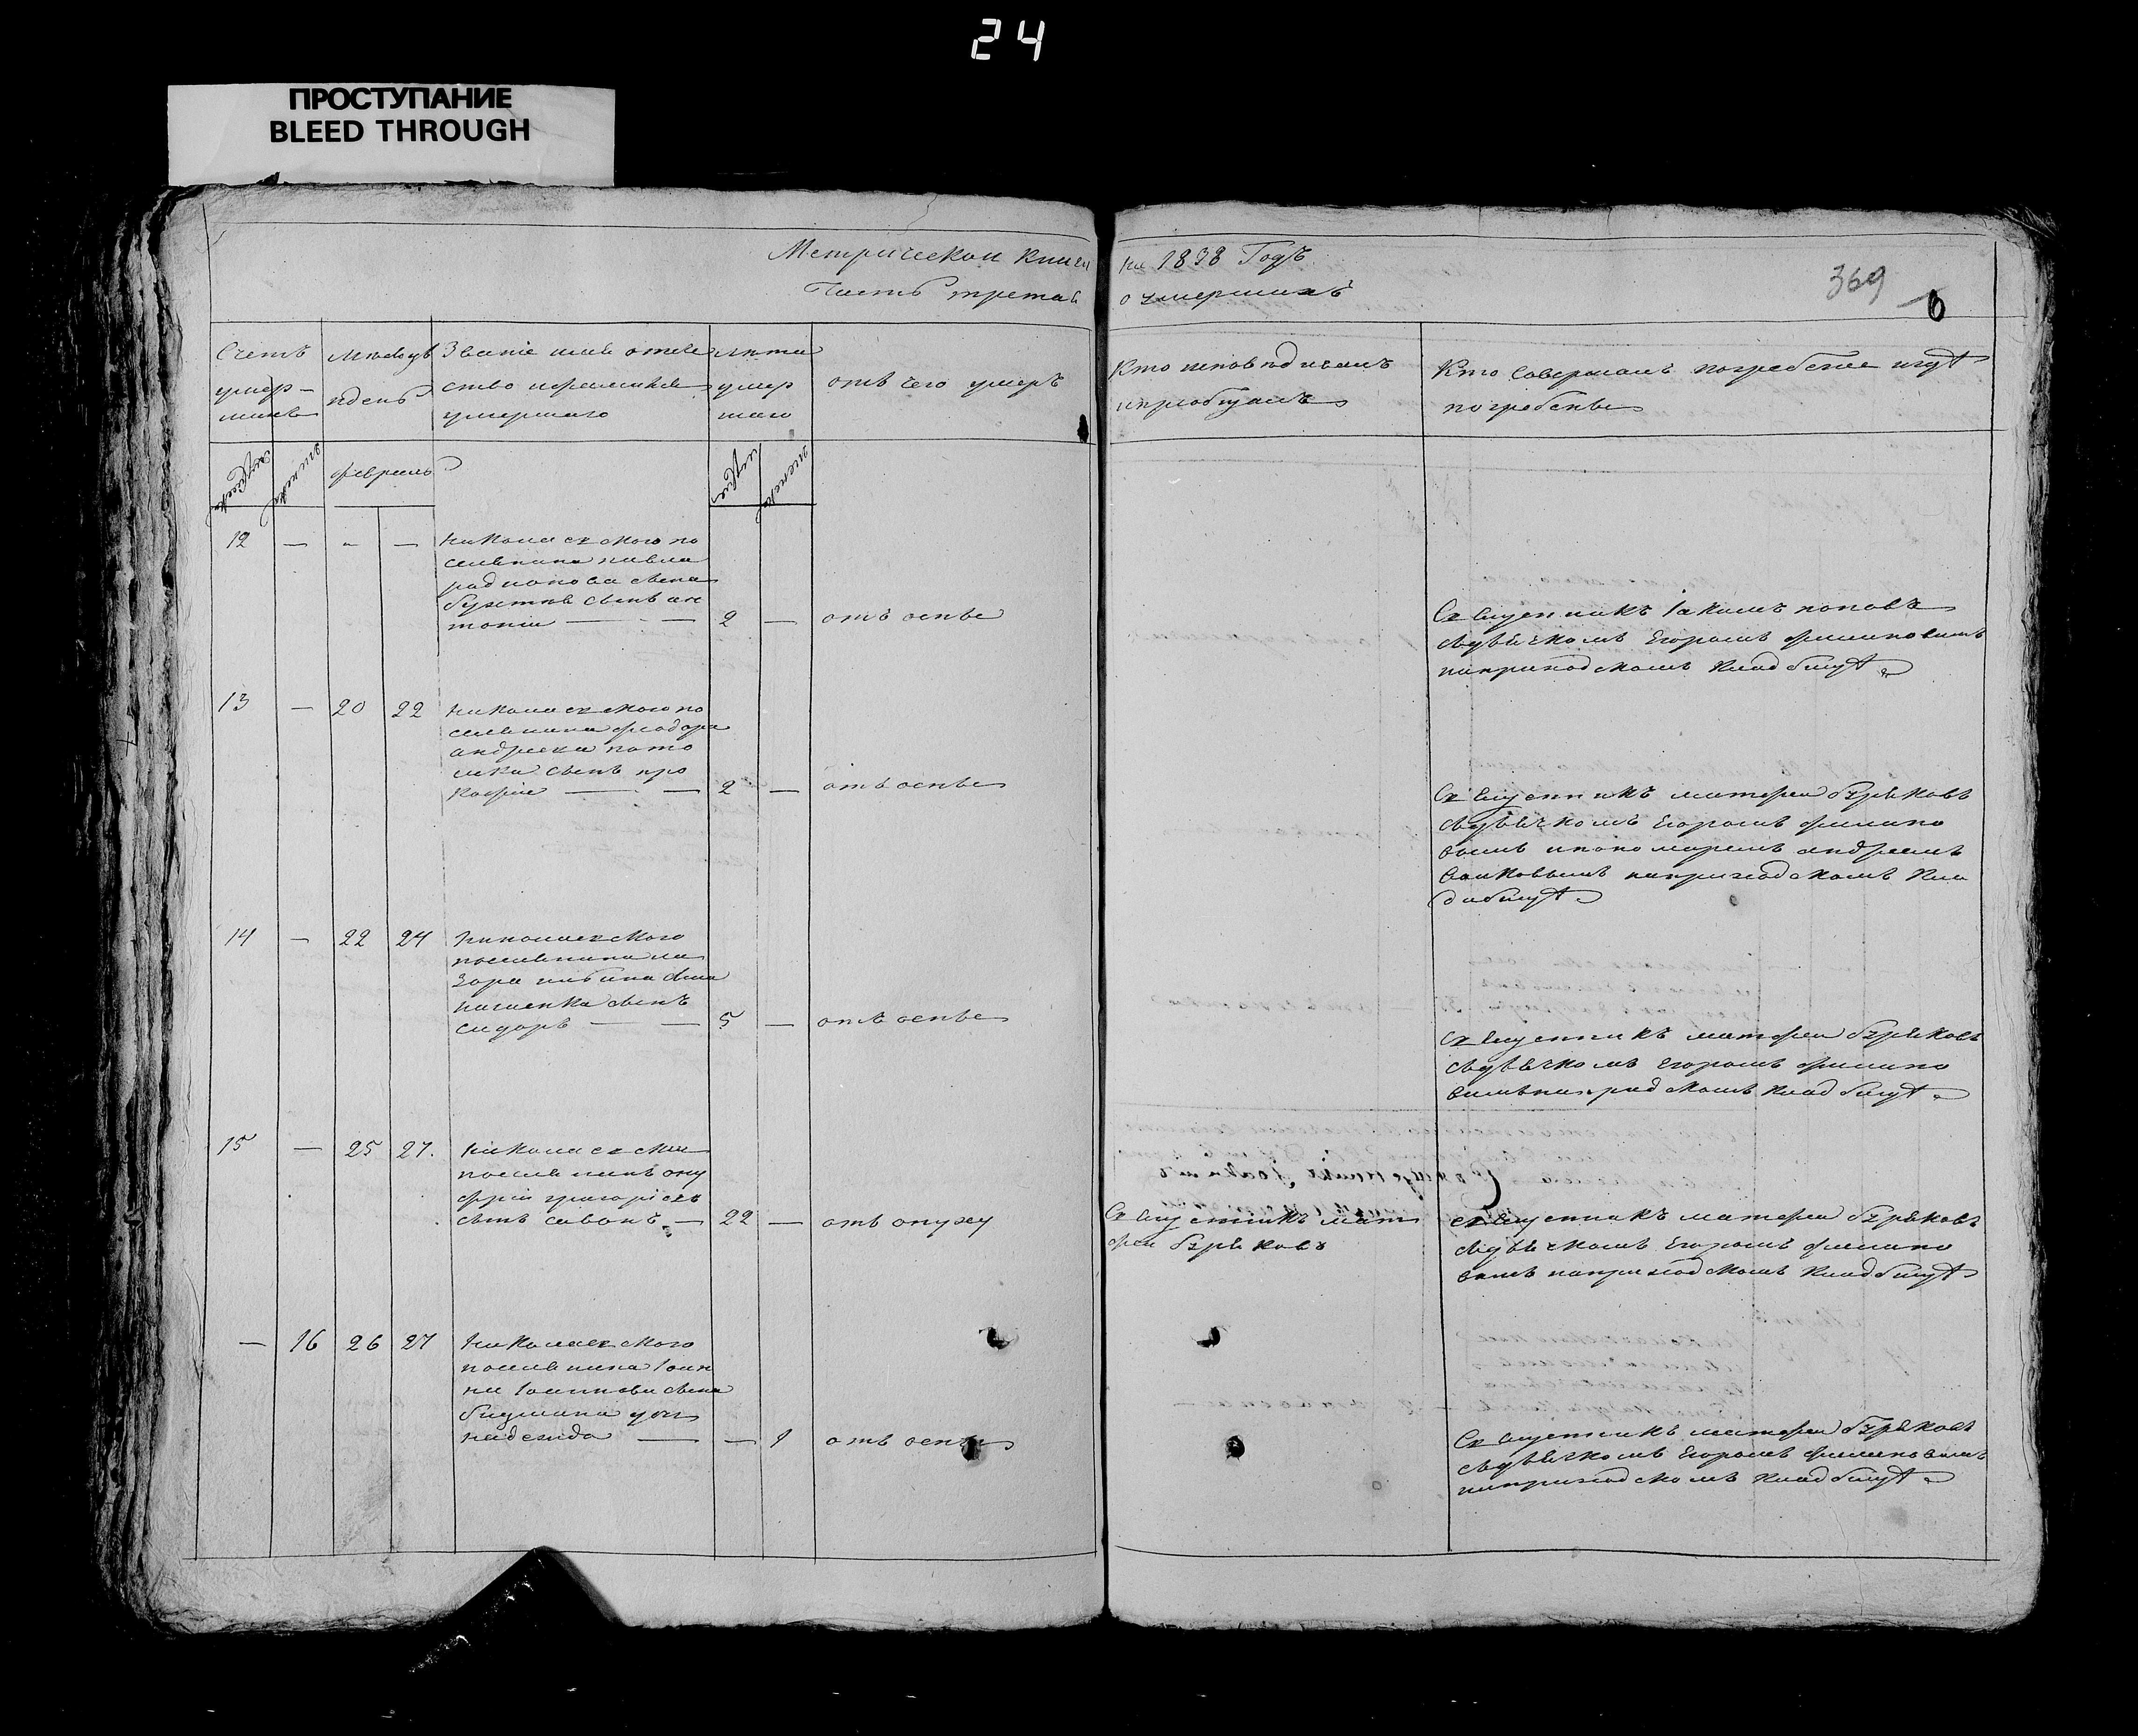 24
ПРОСТУПАНИЕ
BLEED THROUGH
Метрической книги на 1838 Годъ
Часть третая о умершихъ
369
Счетъ умер-шихъ
мѣсецъ идень
Званіе имя отече
ство ифамилия
умершаго
лѣта
умер
шаго
отъ чего умеръ
Кто исповѣдиалъ
иприобщалъ
Кто Совершалъ погребение игдѣ
погребены
февраль
12 — - —
николаевского по
селянина павла
радионова сына
сынъ ан
тоній — — 2 — отъ оспы
Священникъ Іакимъ поповъ
сдьячкомъ Егоромъ филиповымъ
наприходскомъ кладбищѣ
13 — 20 22
николаевского по
селянина феодора
андреева пото
сынъ про
кофие — — 2 — отъ оспы
Священникъ матфеи бзрѣковъ
сдьячкомъ Егоромъ филипо
вымъ ипономаремъ андреемъ
наприходскомъ кла
дабищѣ
14 — 22 24
николаевского
поселянина ла
зара
сынъ
сидоръ — — 5 — отъ оспы
Священникъ матфеи бзрѣковъ
сдьячкомъ Егоромъ филипо
вымъ кладбищѣ
15 — 25 27.
николаевски
поселянинъ ону
фрій григоріевъ
сынъ — 22 — отъ опуху
Священникъ мат
феи бзрѣковъ
священникъ матфеи бзрѣковъ
сдьячкомъ Егоромъ филипо
вымъ наприходскомъ кладбищѣ
— 16 26 27
николаевского
поселянина Іоан
на Іоаннова сына
дочь
надежда — — 1 отъ оспы
Священникъ матфеи бзрѣковъ
сдьячкомъ Егоромъ филиповымъ
наприходскомъ кладбищѣ